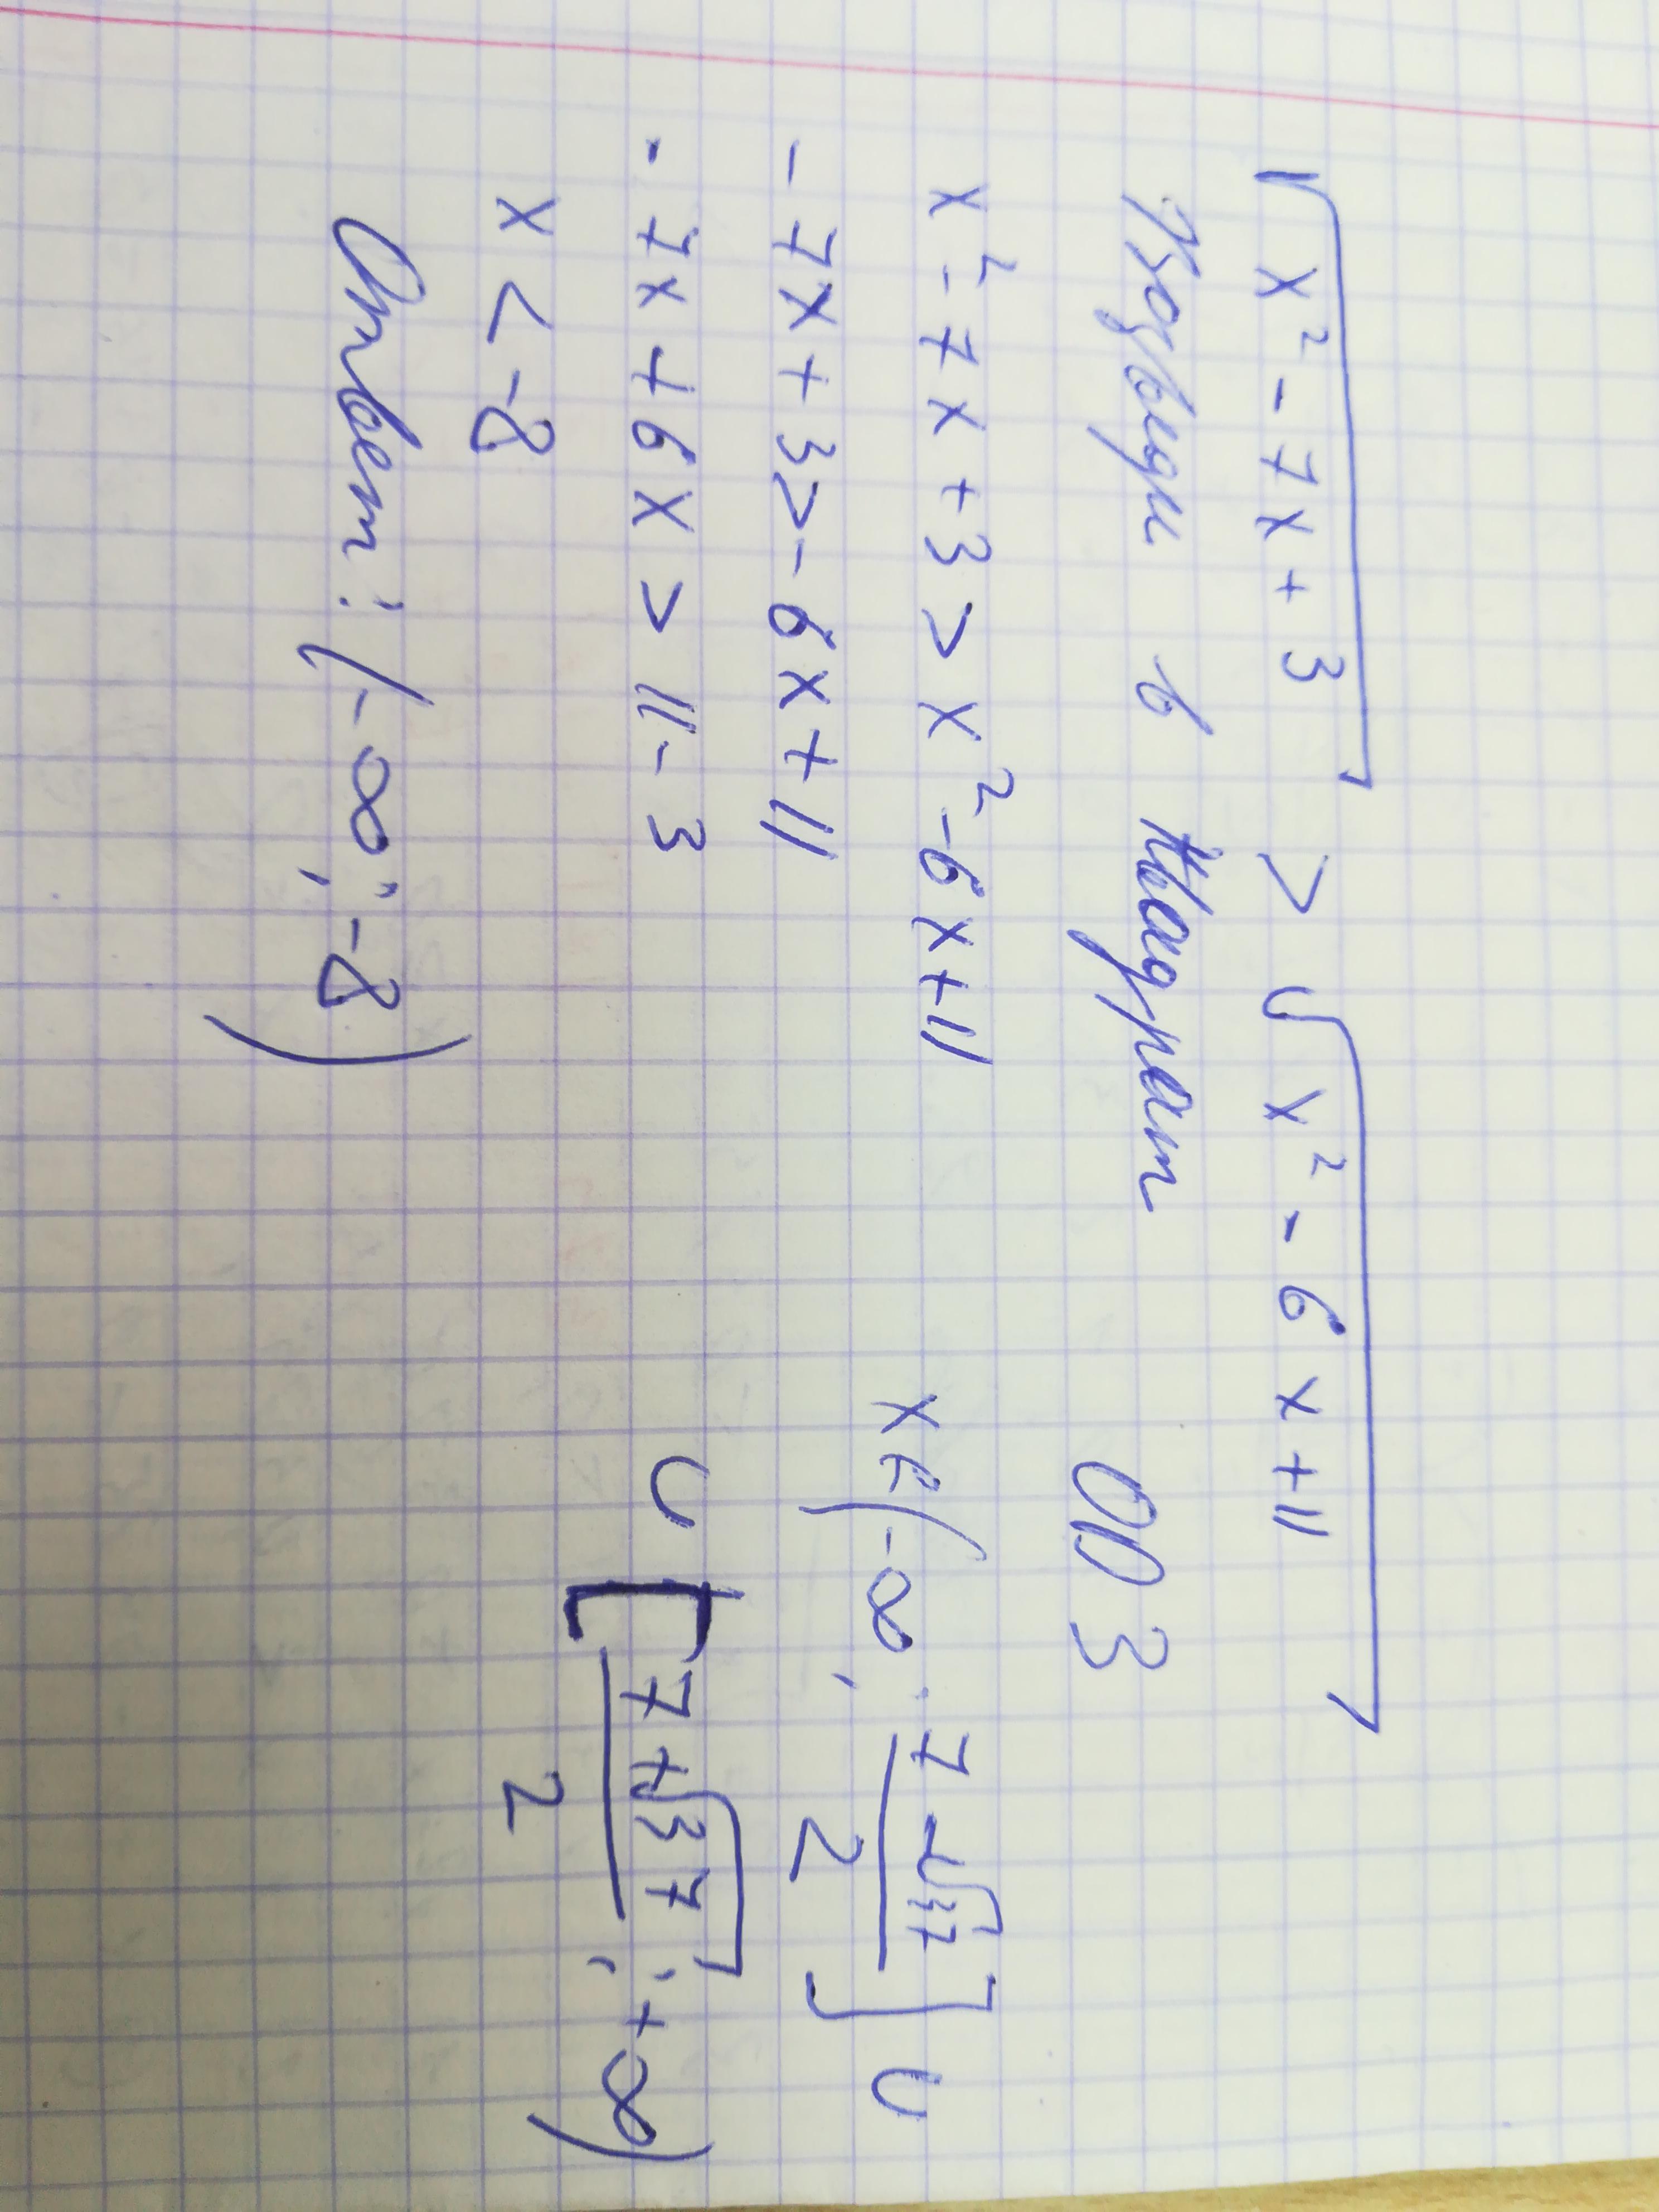 √x² - 7x + 3 > √x² - 6x + 11
Возведи в квадрат
ОДЗ
x² - 7x + 3 > x² - 6x + 11
x ∈ (-∞; 7 - √37 / 2] ∪
- 7x + 3 > - 6x + 11
- 7x + 6x > 11 - 3
∪ [7 + √37 / 2; +∞)
x < -8
Ответ: (-∞; -8)